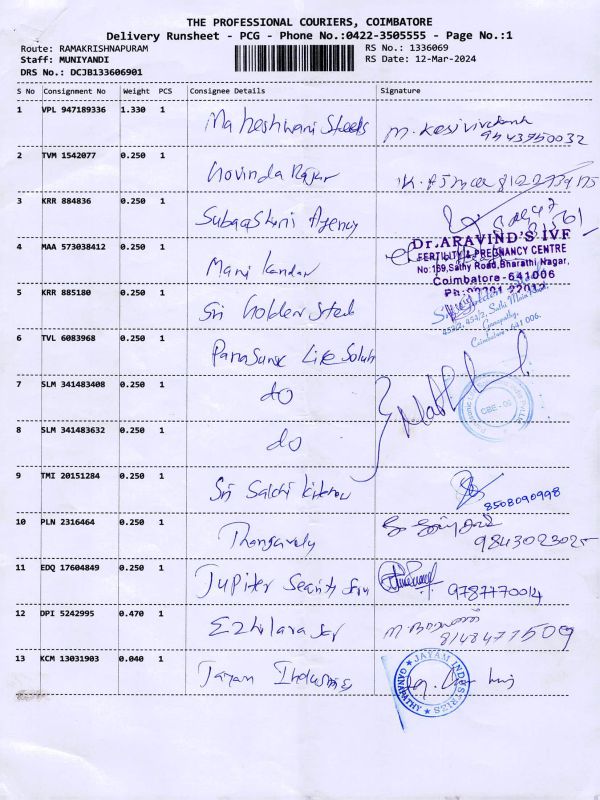 THE PROFESSIONAL COURIERS, COIMBATORE
Delivery Runsheet - PCG - Phone No.:0422-3505555 - Page No.:1
Route: RAMAKRISHNAPURAM RS No.: 1336069
Staff: MUNIYANDI RS Date: 12-Mar-2024
DRS No.: DCJB133606901
S No Consignment No Weight PCS Consignee Details Signature
1 VPL 947189336 1.330 1 Maheshwari Steels M.
9543950032
2 TVM 1542077 0.250 1 Govinda Rajan
3 KRR 884836 0.250 1 Subaashini Agency
4 MAA 573038412 0.250 1 Mani kandan
Dr.ARAVIND'S IVF
FERTILITY & PREGNANCY CENTRE
No:169,Sathy Road,Bharathi Nagar,
Coimbatore-641006
5 KRR 885180 0.250 1 Sri Golden Steel
452/2, 454/2, Sathi Main Road,
Ganapathy,
Coimbatore - 641 006.
6 TVL 6083968 0.250 1 Panasonic Life Soluti
7 SLM 341483408 0.250 1 do
8 SLM 341483632 0.250 1 do
CBE-06
9 TMI 20151284 0.250 1 Sri Sakthi kitchen
8508090998
10 PLN 2316464 0.250 1 Thangavely
9843023025
11 EDQ 17604849 0.250 1 Jupiter Security
9787770014
12 DPI 5242995 0.470 1 Ezhilarasan M.
8148471509
13 KCM 13031903 0.040 1 Jayam Industries
JAYAM INDUSTRIES
GANAPATHY